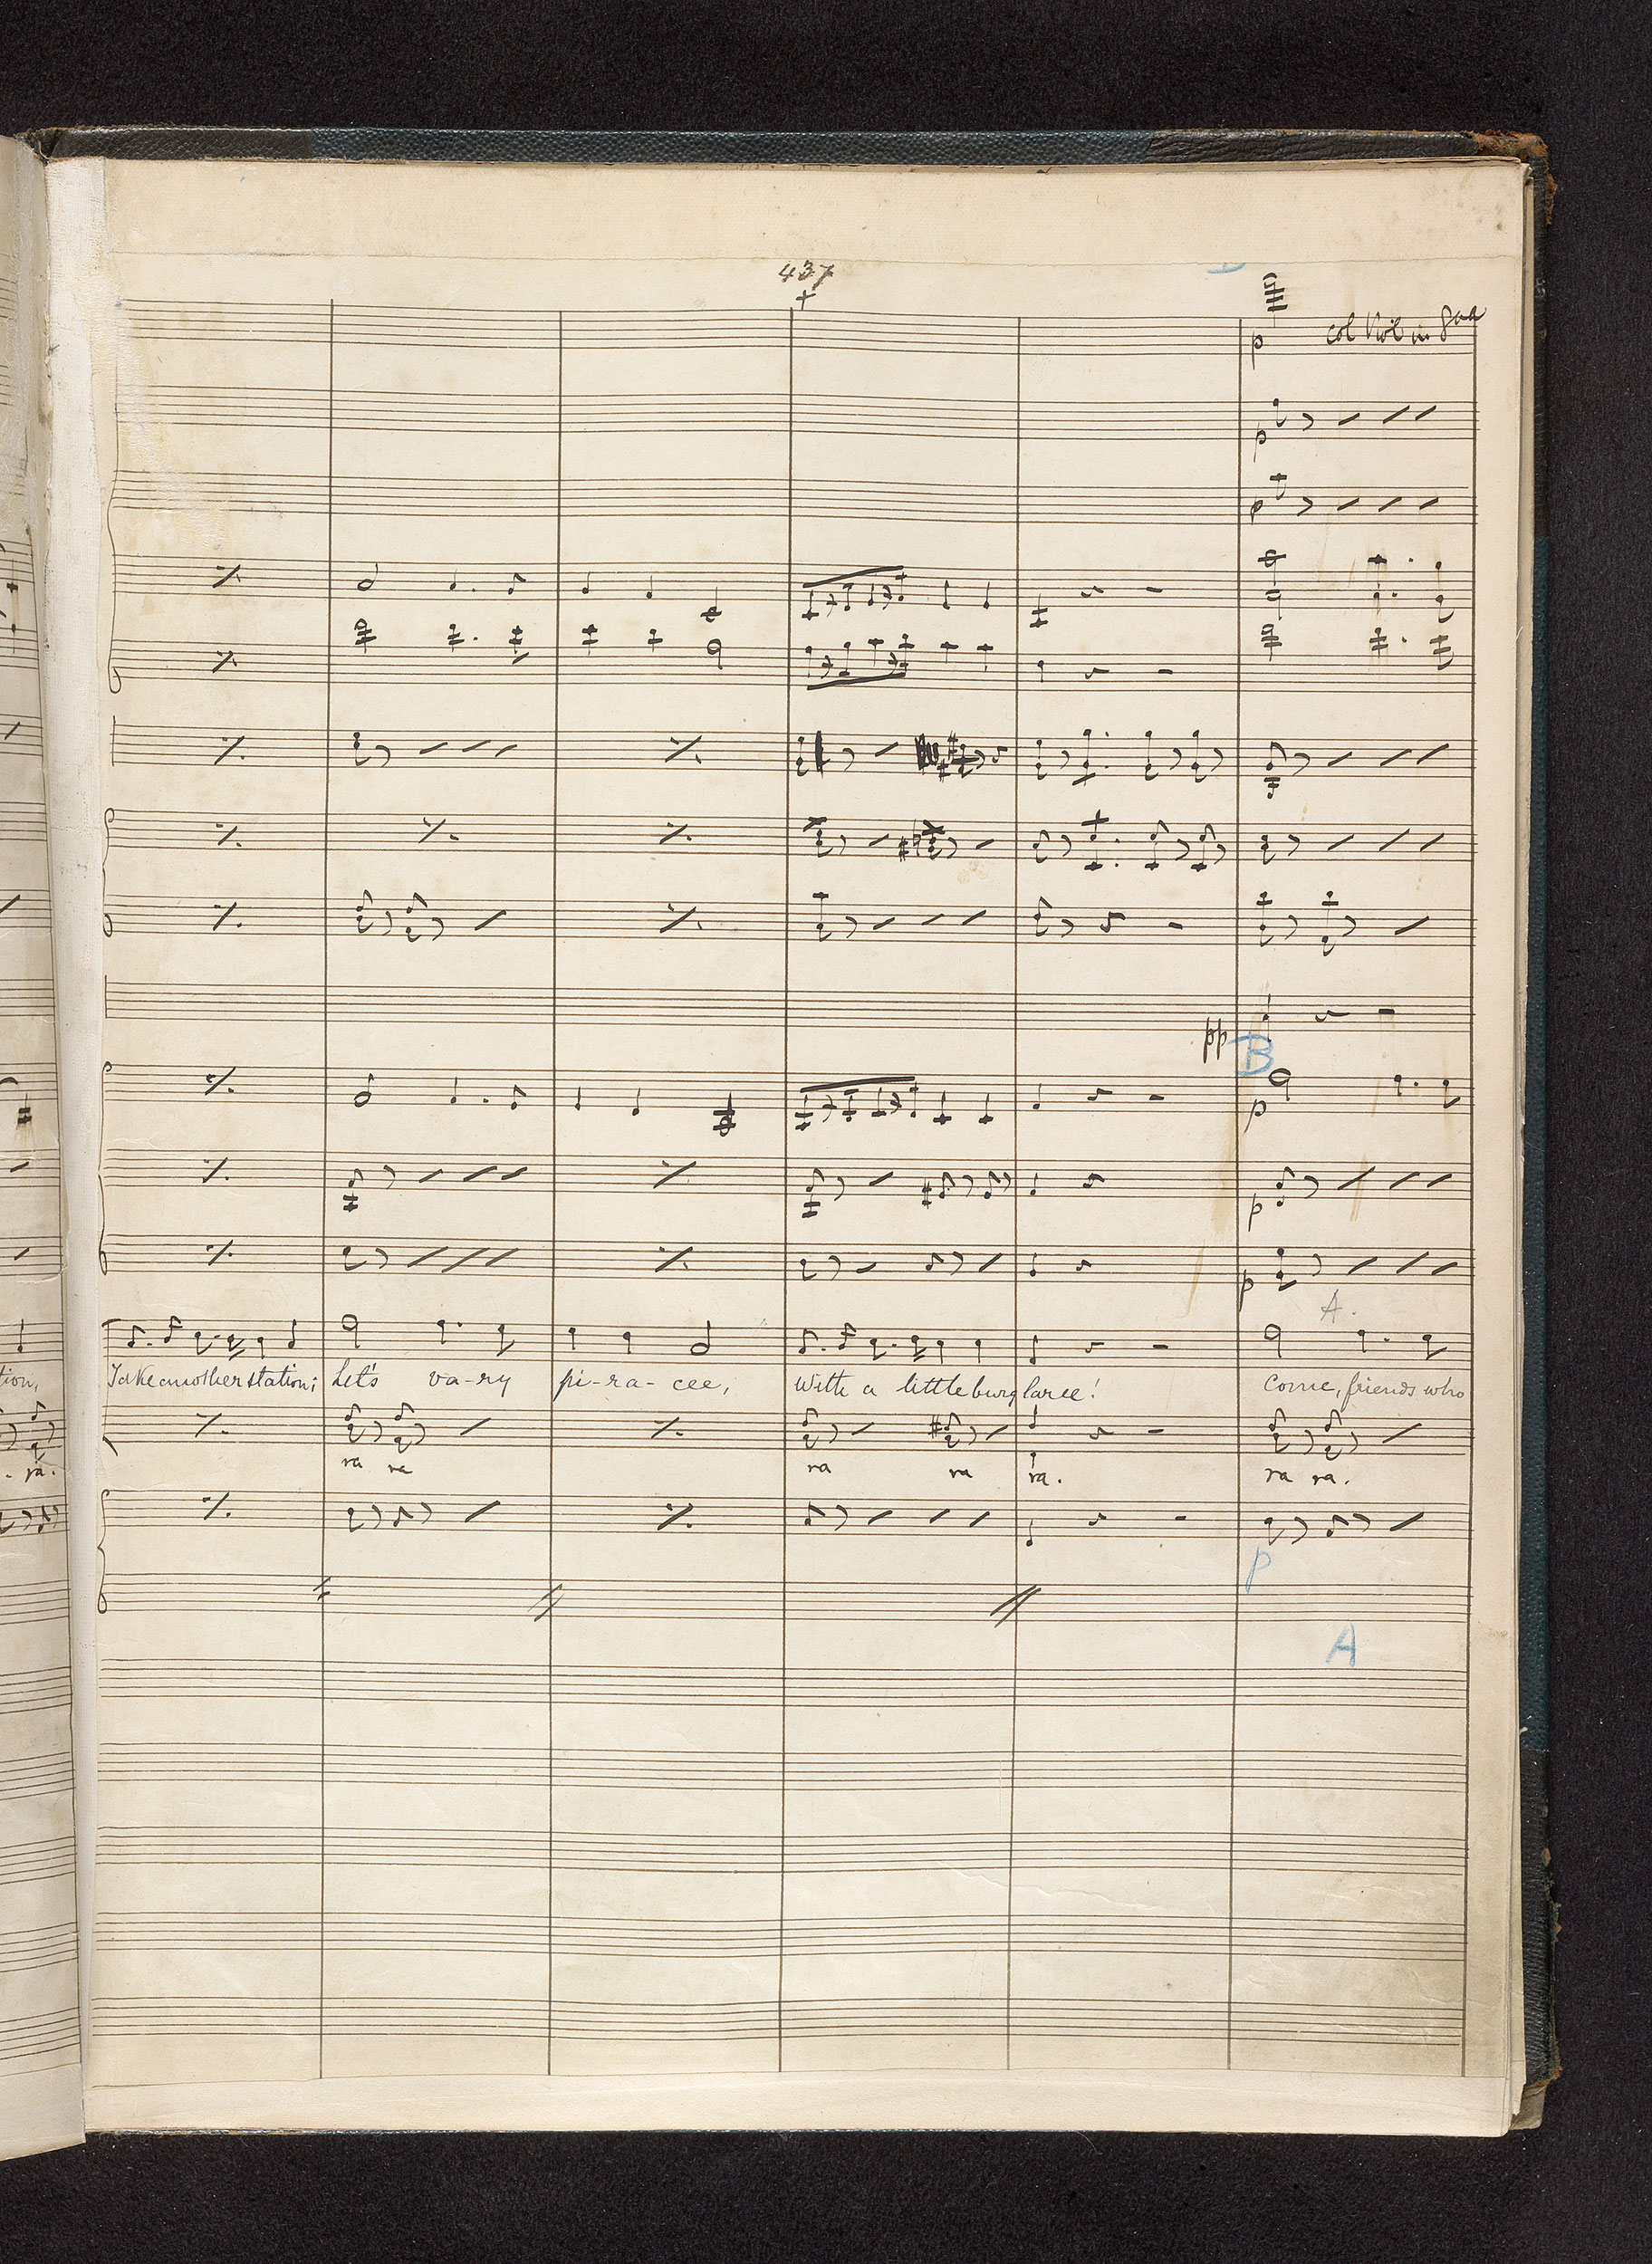 437
+
p col Viol in 8va
p
p
pp B
p
p
p
A.
tion, Take another station; Let's va-ry pi-ra-cee, With a little burglaree! Come, friends who
- ra. ra ra ra ra ra. ra ra.
p
A